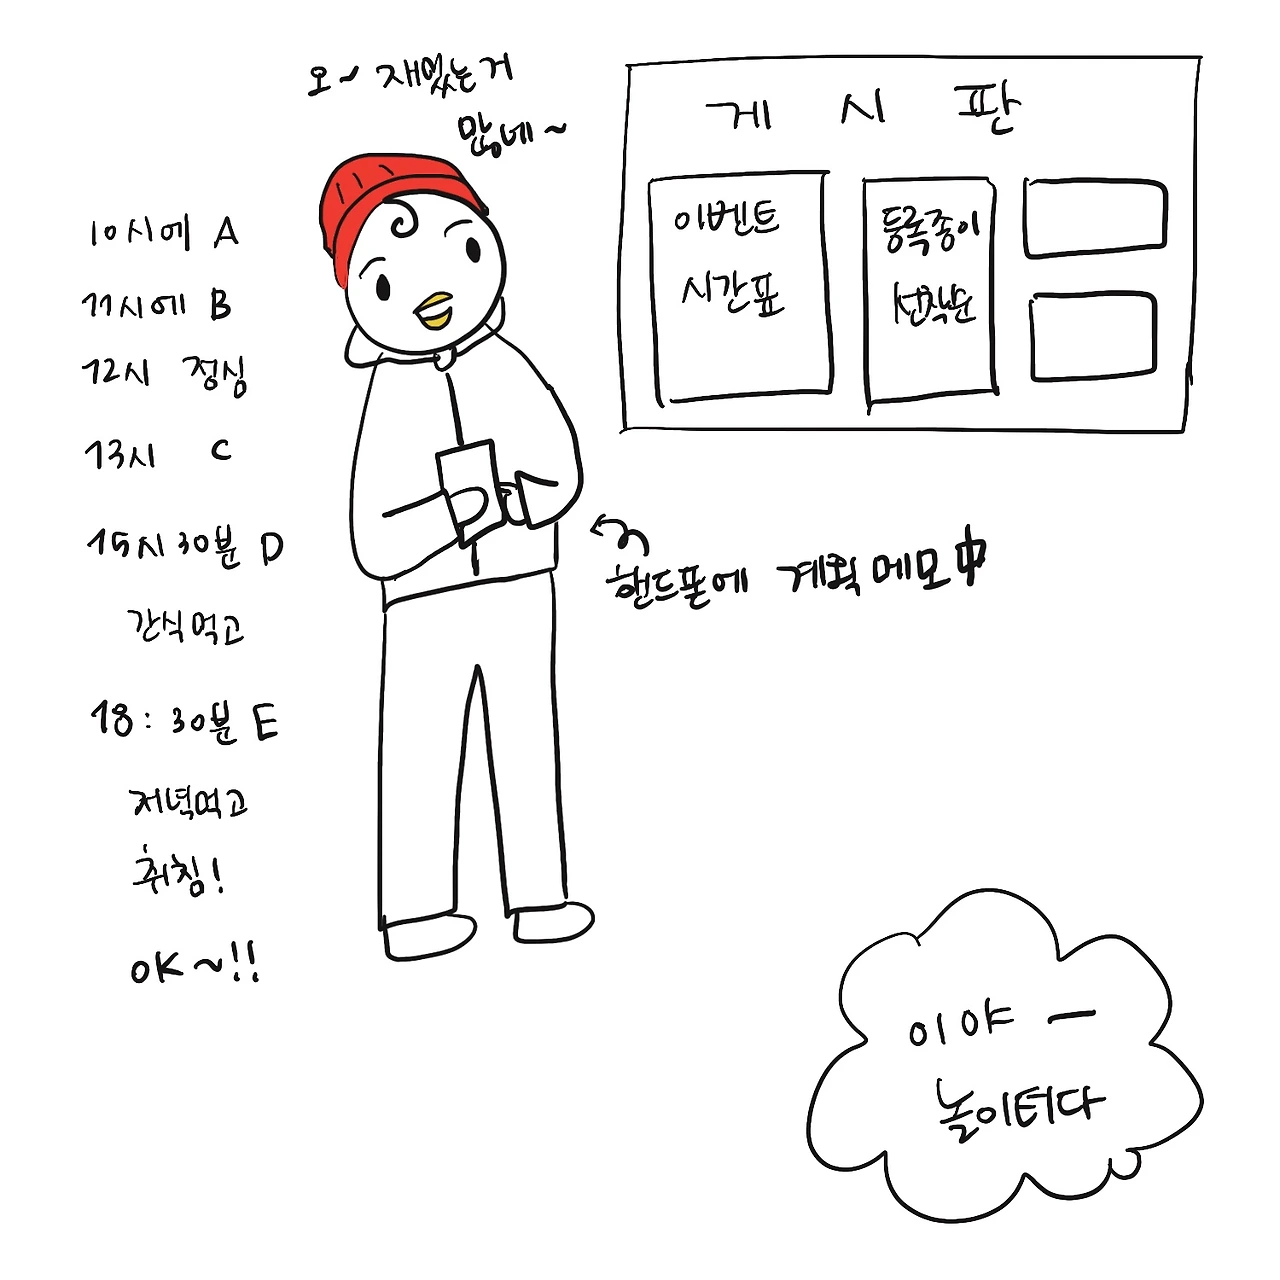 오~ 재밌는거
많네~
게시판
이벤트
시간표
등록종이
선착순
10시에 A
11시에 B
12시 정심
13시 C
15시 30분 D
간식먹고
18:30분 E
저녁먹고
취침!
OK~!!
핸드폰에 계획메모中
이야ー
놀이터다